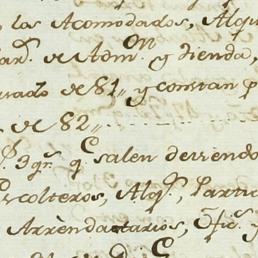 los Acomodados, Alqu
ar.^s de Adm.^on y tienda,
uado de 81,, y constan p
de 82,,
q.^e salen deviendo
Escolteros, Alq.^s, Partic
Arrendatarios, Ofic.^s y